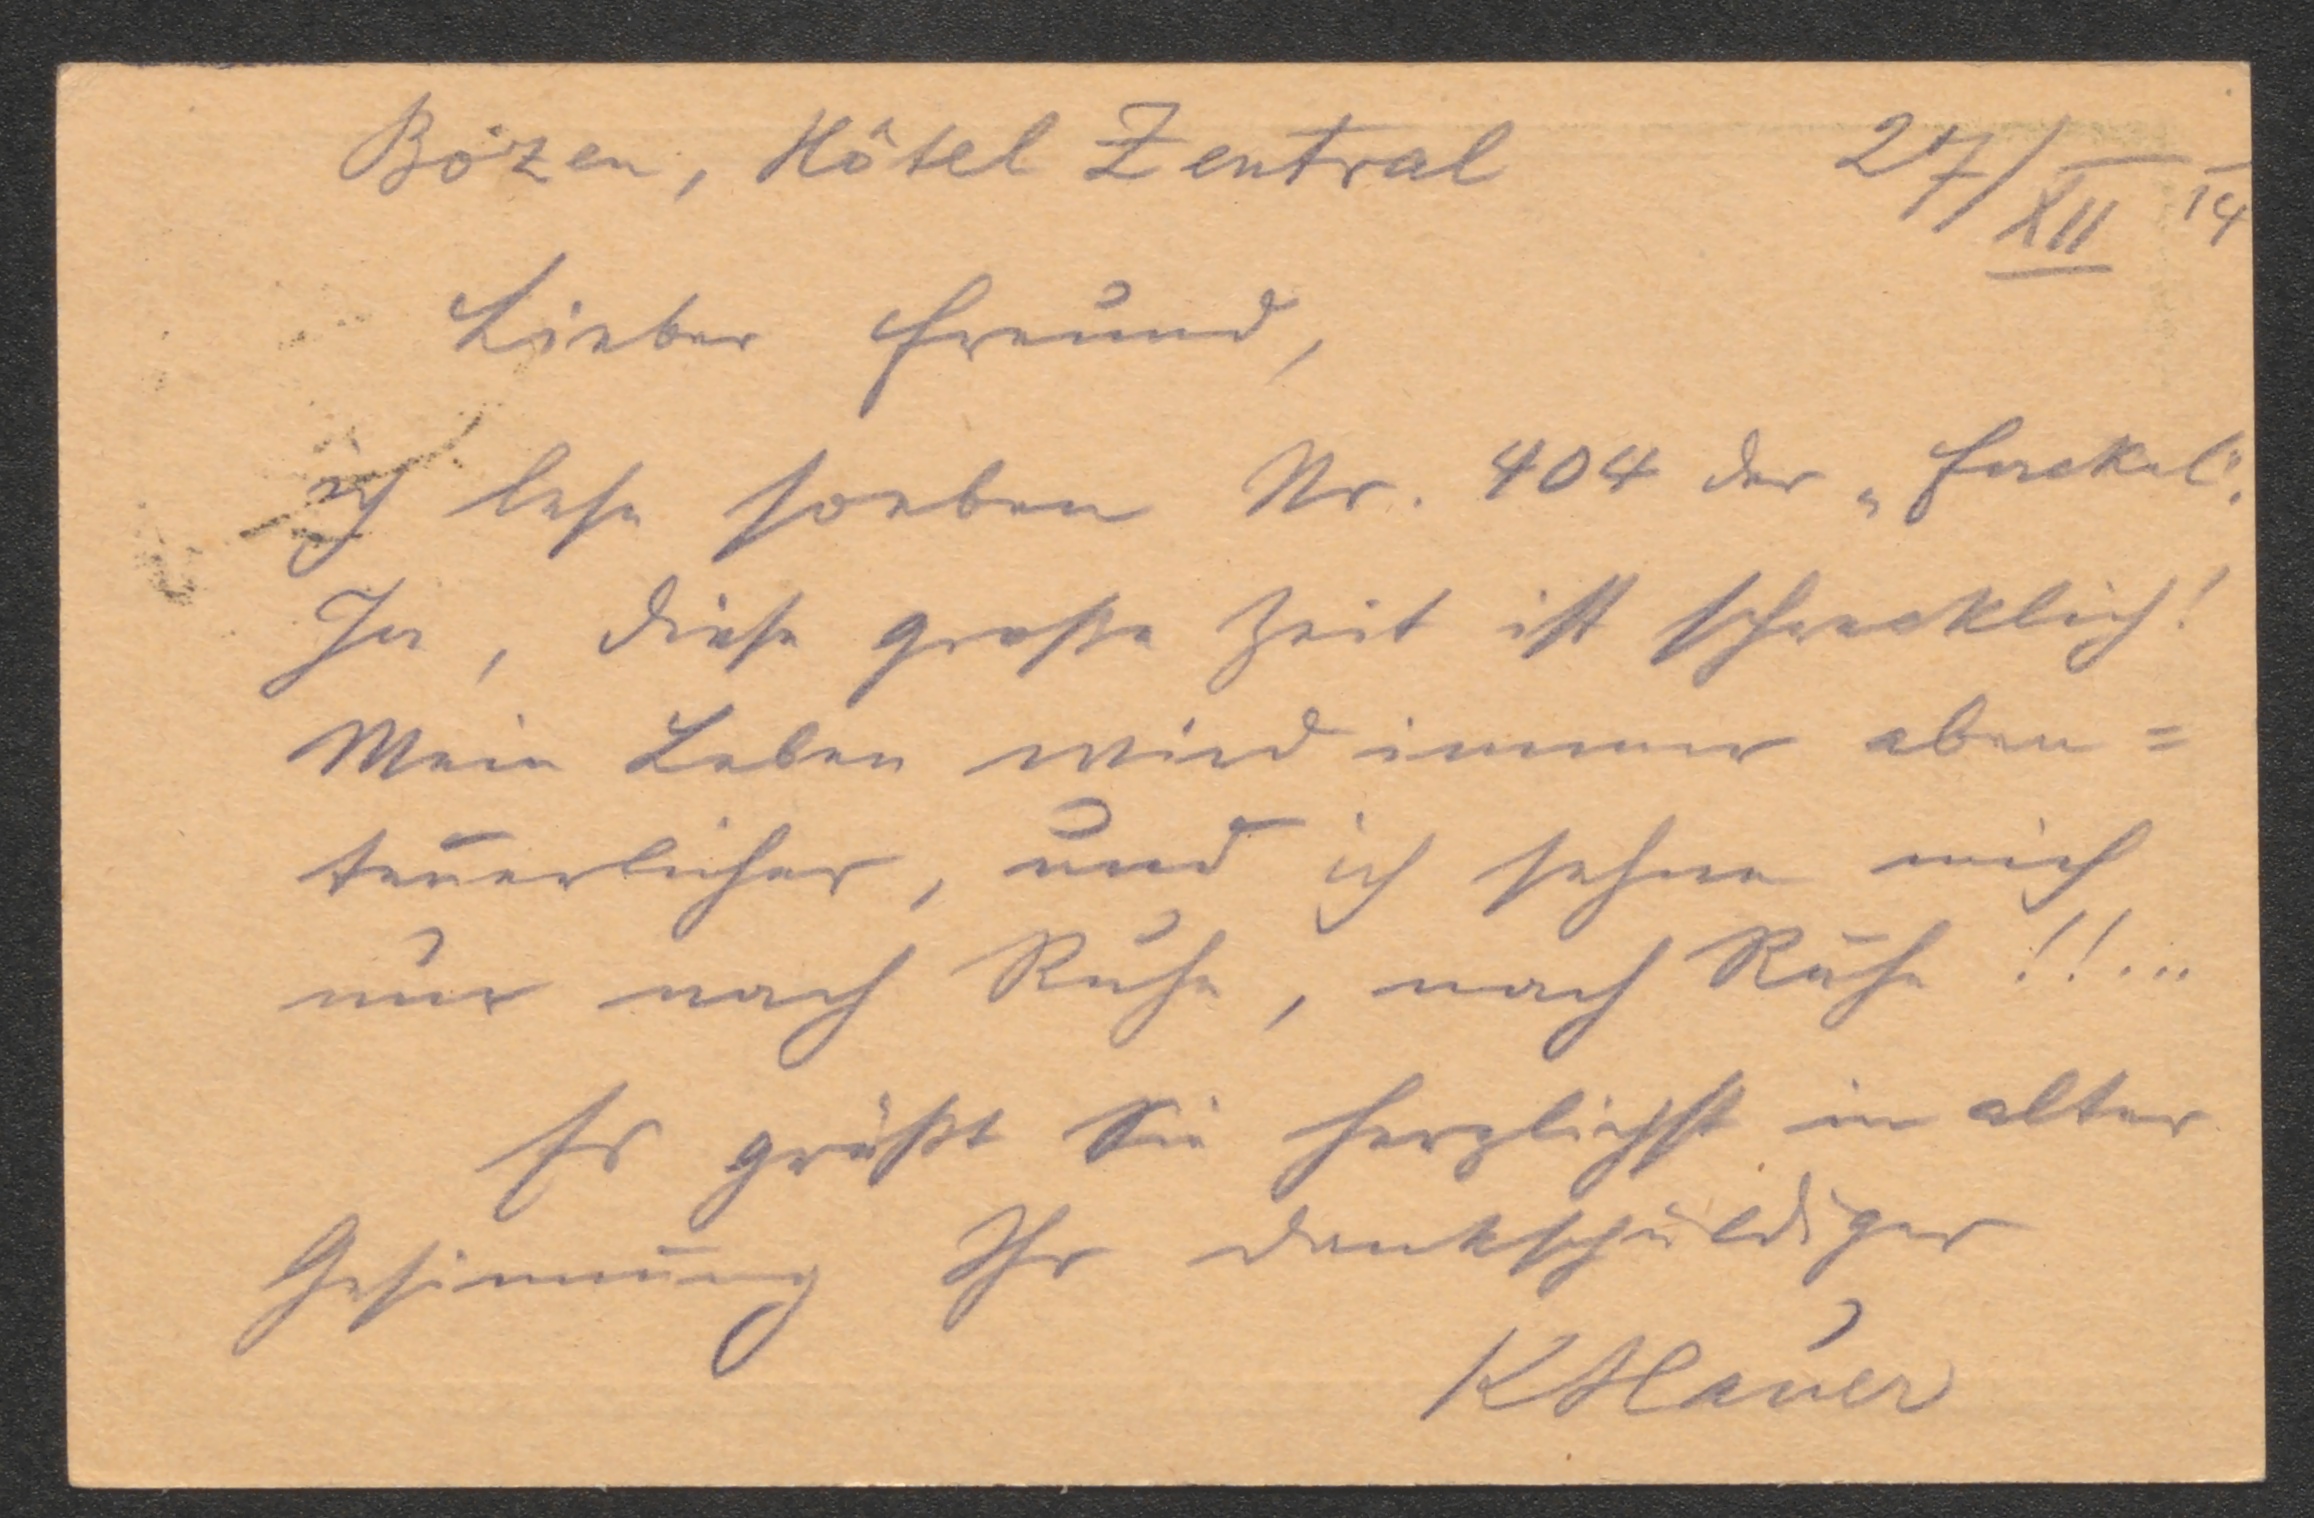 Bozen, Hôtel Zentral 27/XII 14
Lieber Freund,
ich lese soeben Nr. 404 der „Fackel“.
Ja, diese große Zeit ist schrecklich!
Mein Leben wird immer aben=
teuerlicher, und ich sehne mich
nur nach Ruhe, nach Ruhe!!...
Es grüßt Sie herzlichst in alter
Gesinnung Ihr dankschuldiger
KHauer